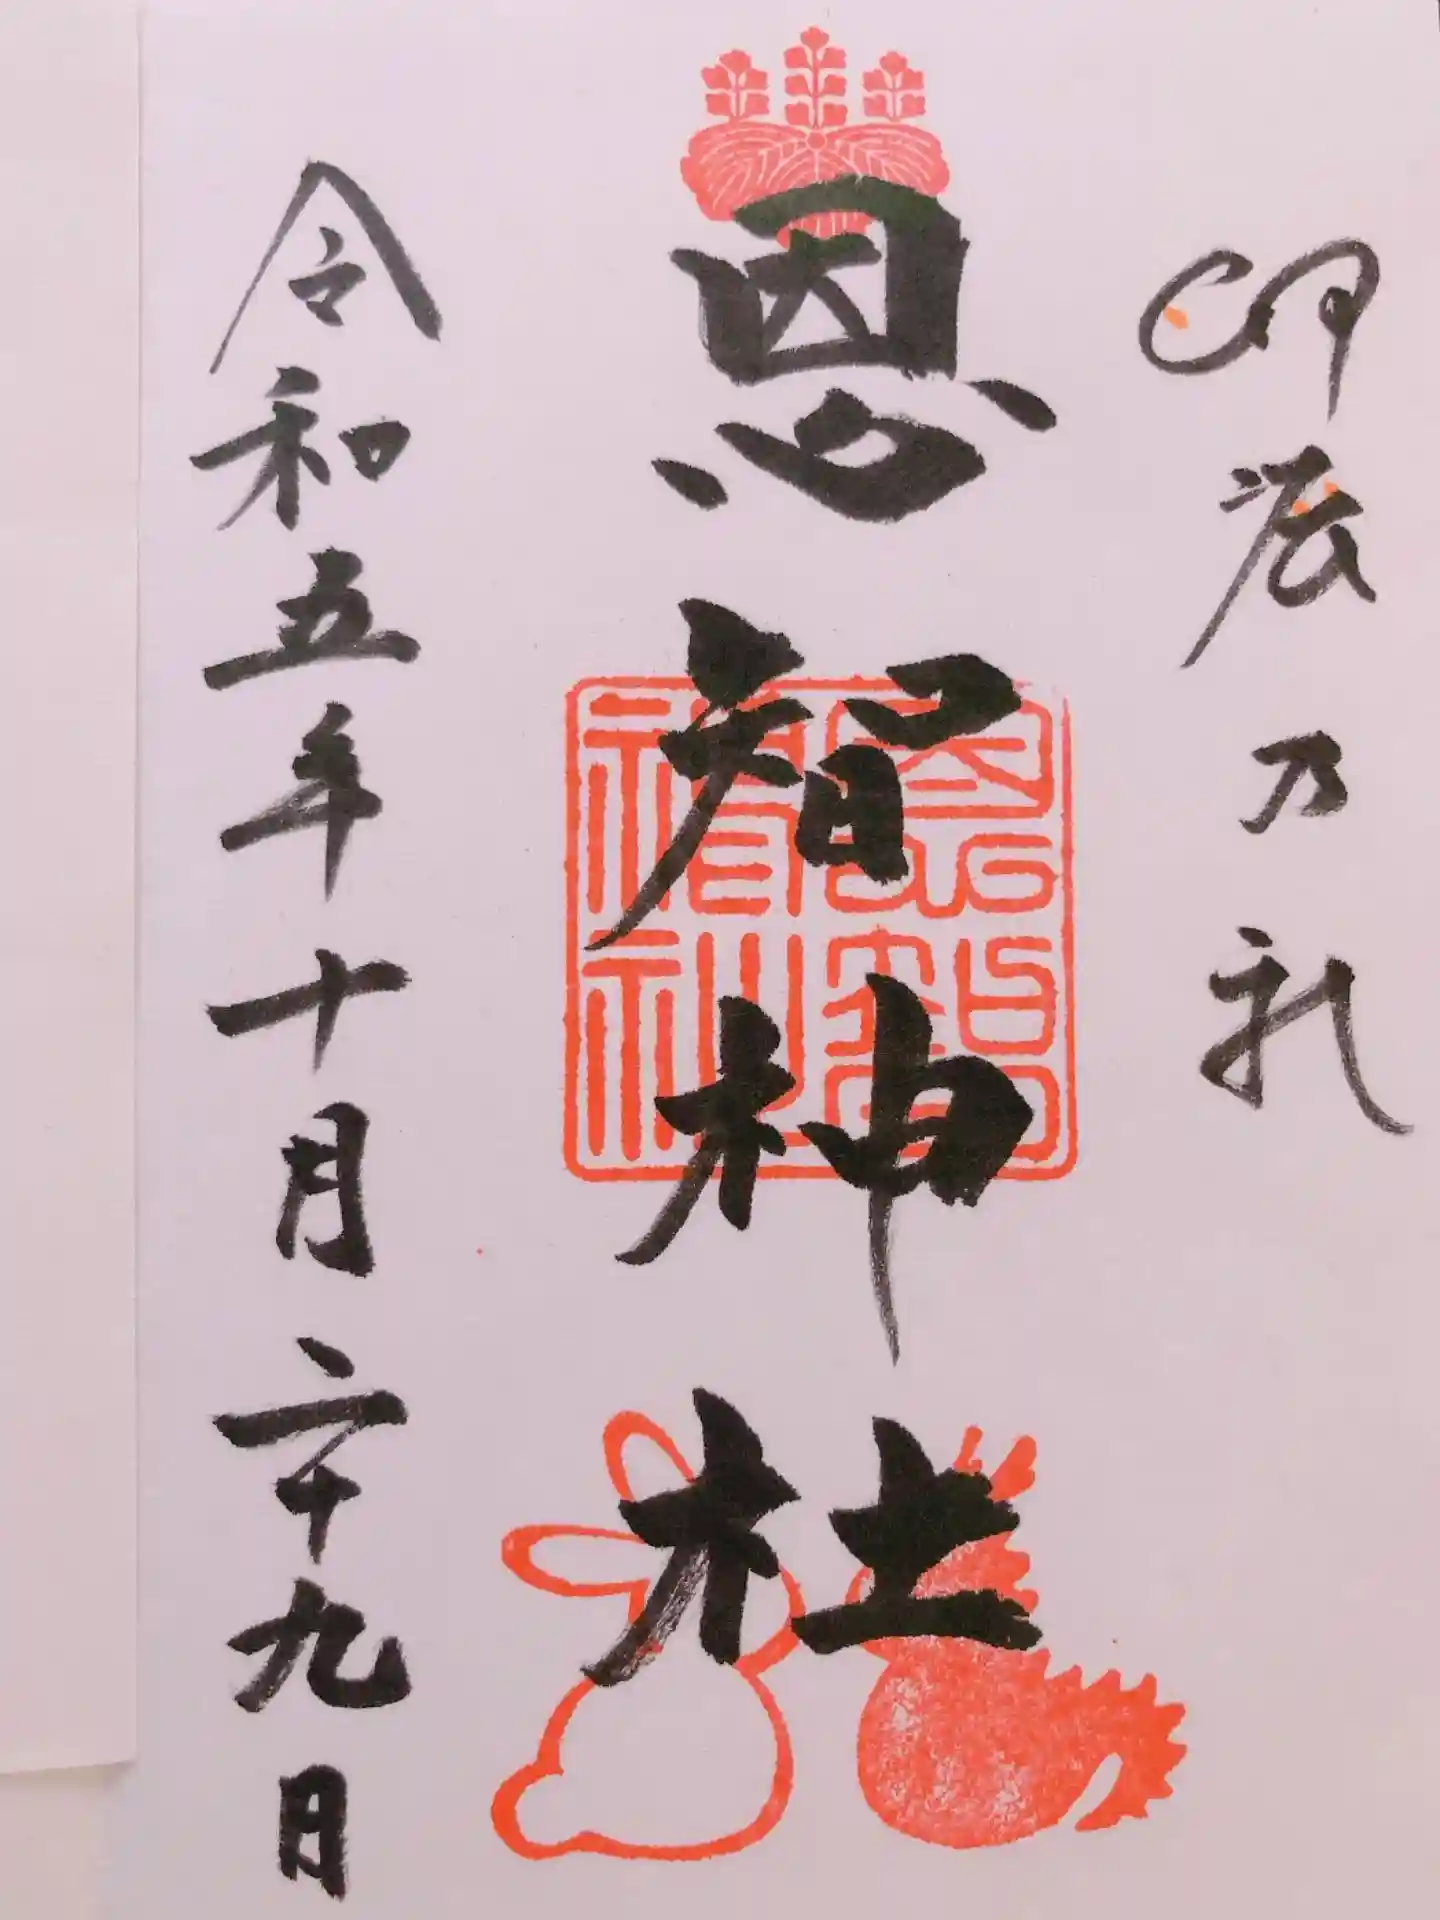 卯辰乃礼
恩智神社
恩智
神社
令和五年十月二十九日